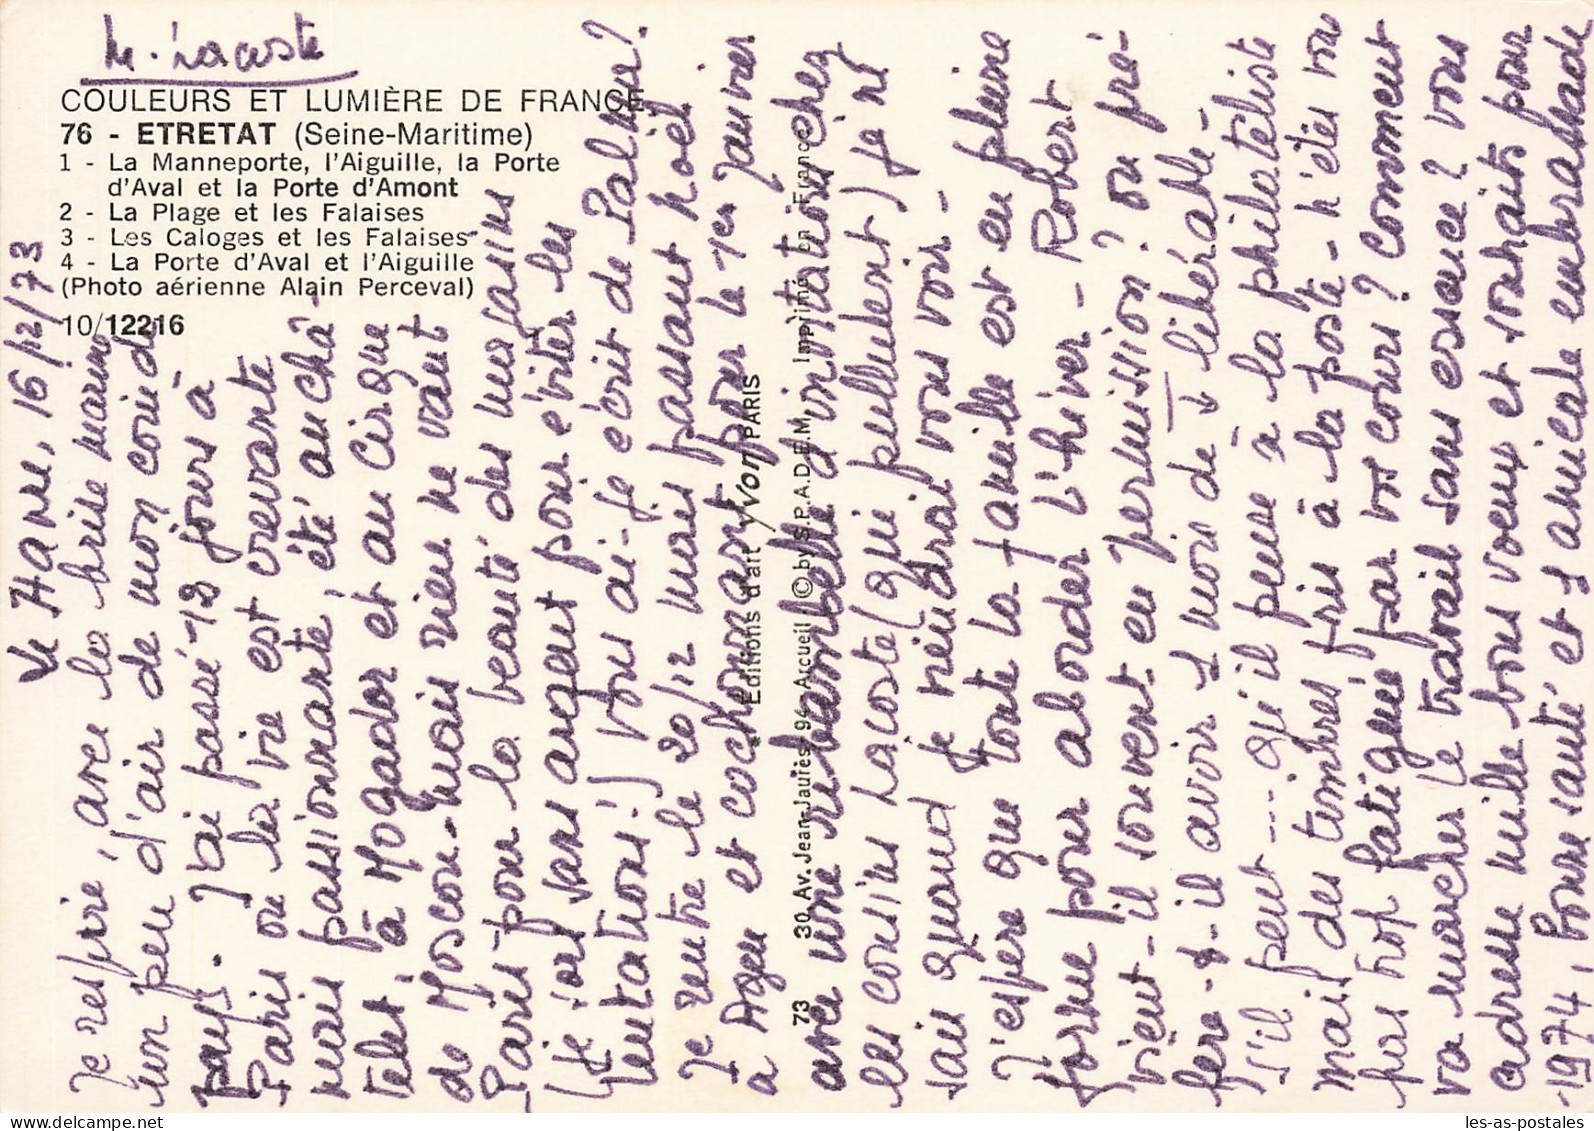 M. Lacoste
COULEURS ET LUMIÈRE DE FRANCE
76 - ETRETAT (Seine-Maritime)
1 - La Manneporte, l'Aiguille, la Porte
d'Aval et la Porte d'Amont
2 - La Plage et les Falaises
3 - Les Caloges et les Falaises
4 - La Porte d'Aval et l'Aiguille
(Photo aérienne Alain Perceval)
10/12216
Le Havre, 16/12/73
Je respire, avec la brise marine
un peu d'air de mon coin de
pays. J'ai passé 13 jours à
Paris où la vie est crevante
mais passionnante, été au châ-
telet, à Mogador et au cirque
de Moscou. Mais rien ne vaut
Paris pour la beauté des magasins
(je sors sans argent pour éviter les
tentations!) Vous ai-je écrit de Palma?
Je rentre le 20/12 mais passant noël
à Agen et cochonnant pour le 1er janvier
avec une ribambelle d'invitations chez
les cousins Lacoste (qui pullulent) je ne
sais quand je viendrai vous voir -
J'espère que toute la famille est en pleine
forme pour aborder l'hiver - Robert
vient-il souvent en permission? ou pré-
fère-t-il avoir 1 mois de + libérable -
S'il peut... qu'il pense à la philatéliste
mais des timbres pris à la poste - n'êtes vous
pas trop fatiguée par vos cours? Comment
va marcher le travail sans essence? Vous
adresse mille bons voeux et souhaits pour
1974, bonne santé, et 1 amicale embrassade
Editions d'art Yvon PARIS
73 30, Av. Jean-Jaurès 94-Arcueil © by S.P.A.D.E.M. Imprimé en France
les-as-postales